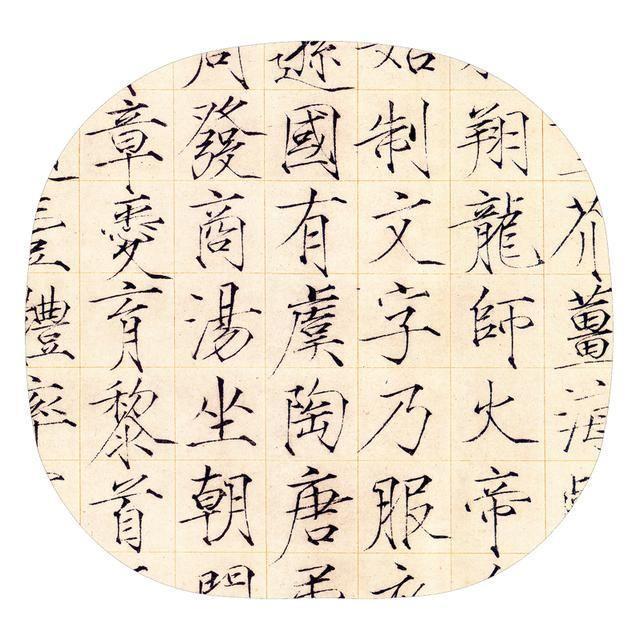 芥薑海
翔龍師火帝
始制文字乃服衣
遜國有虞陶唐弔
周發商湯坐朝問
章愛育黎首
壹體率